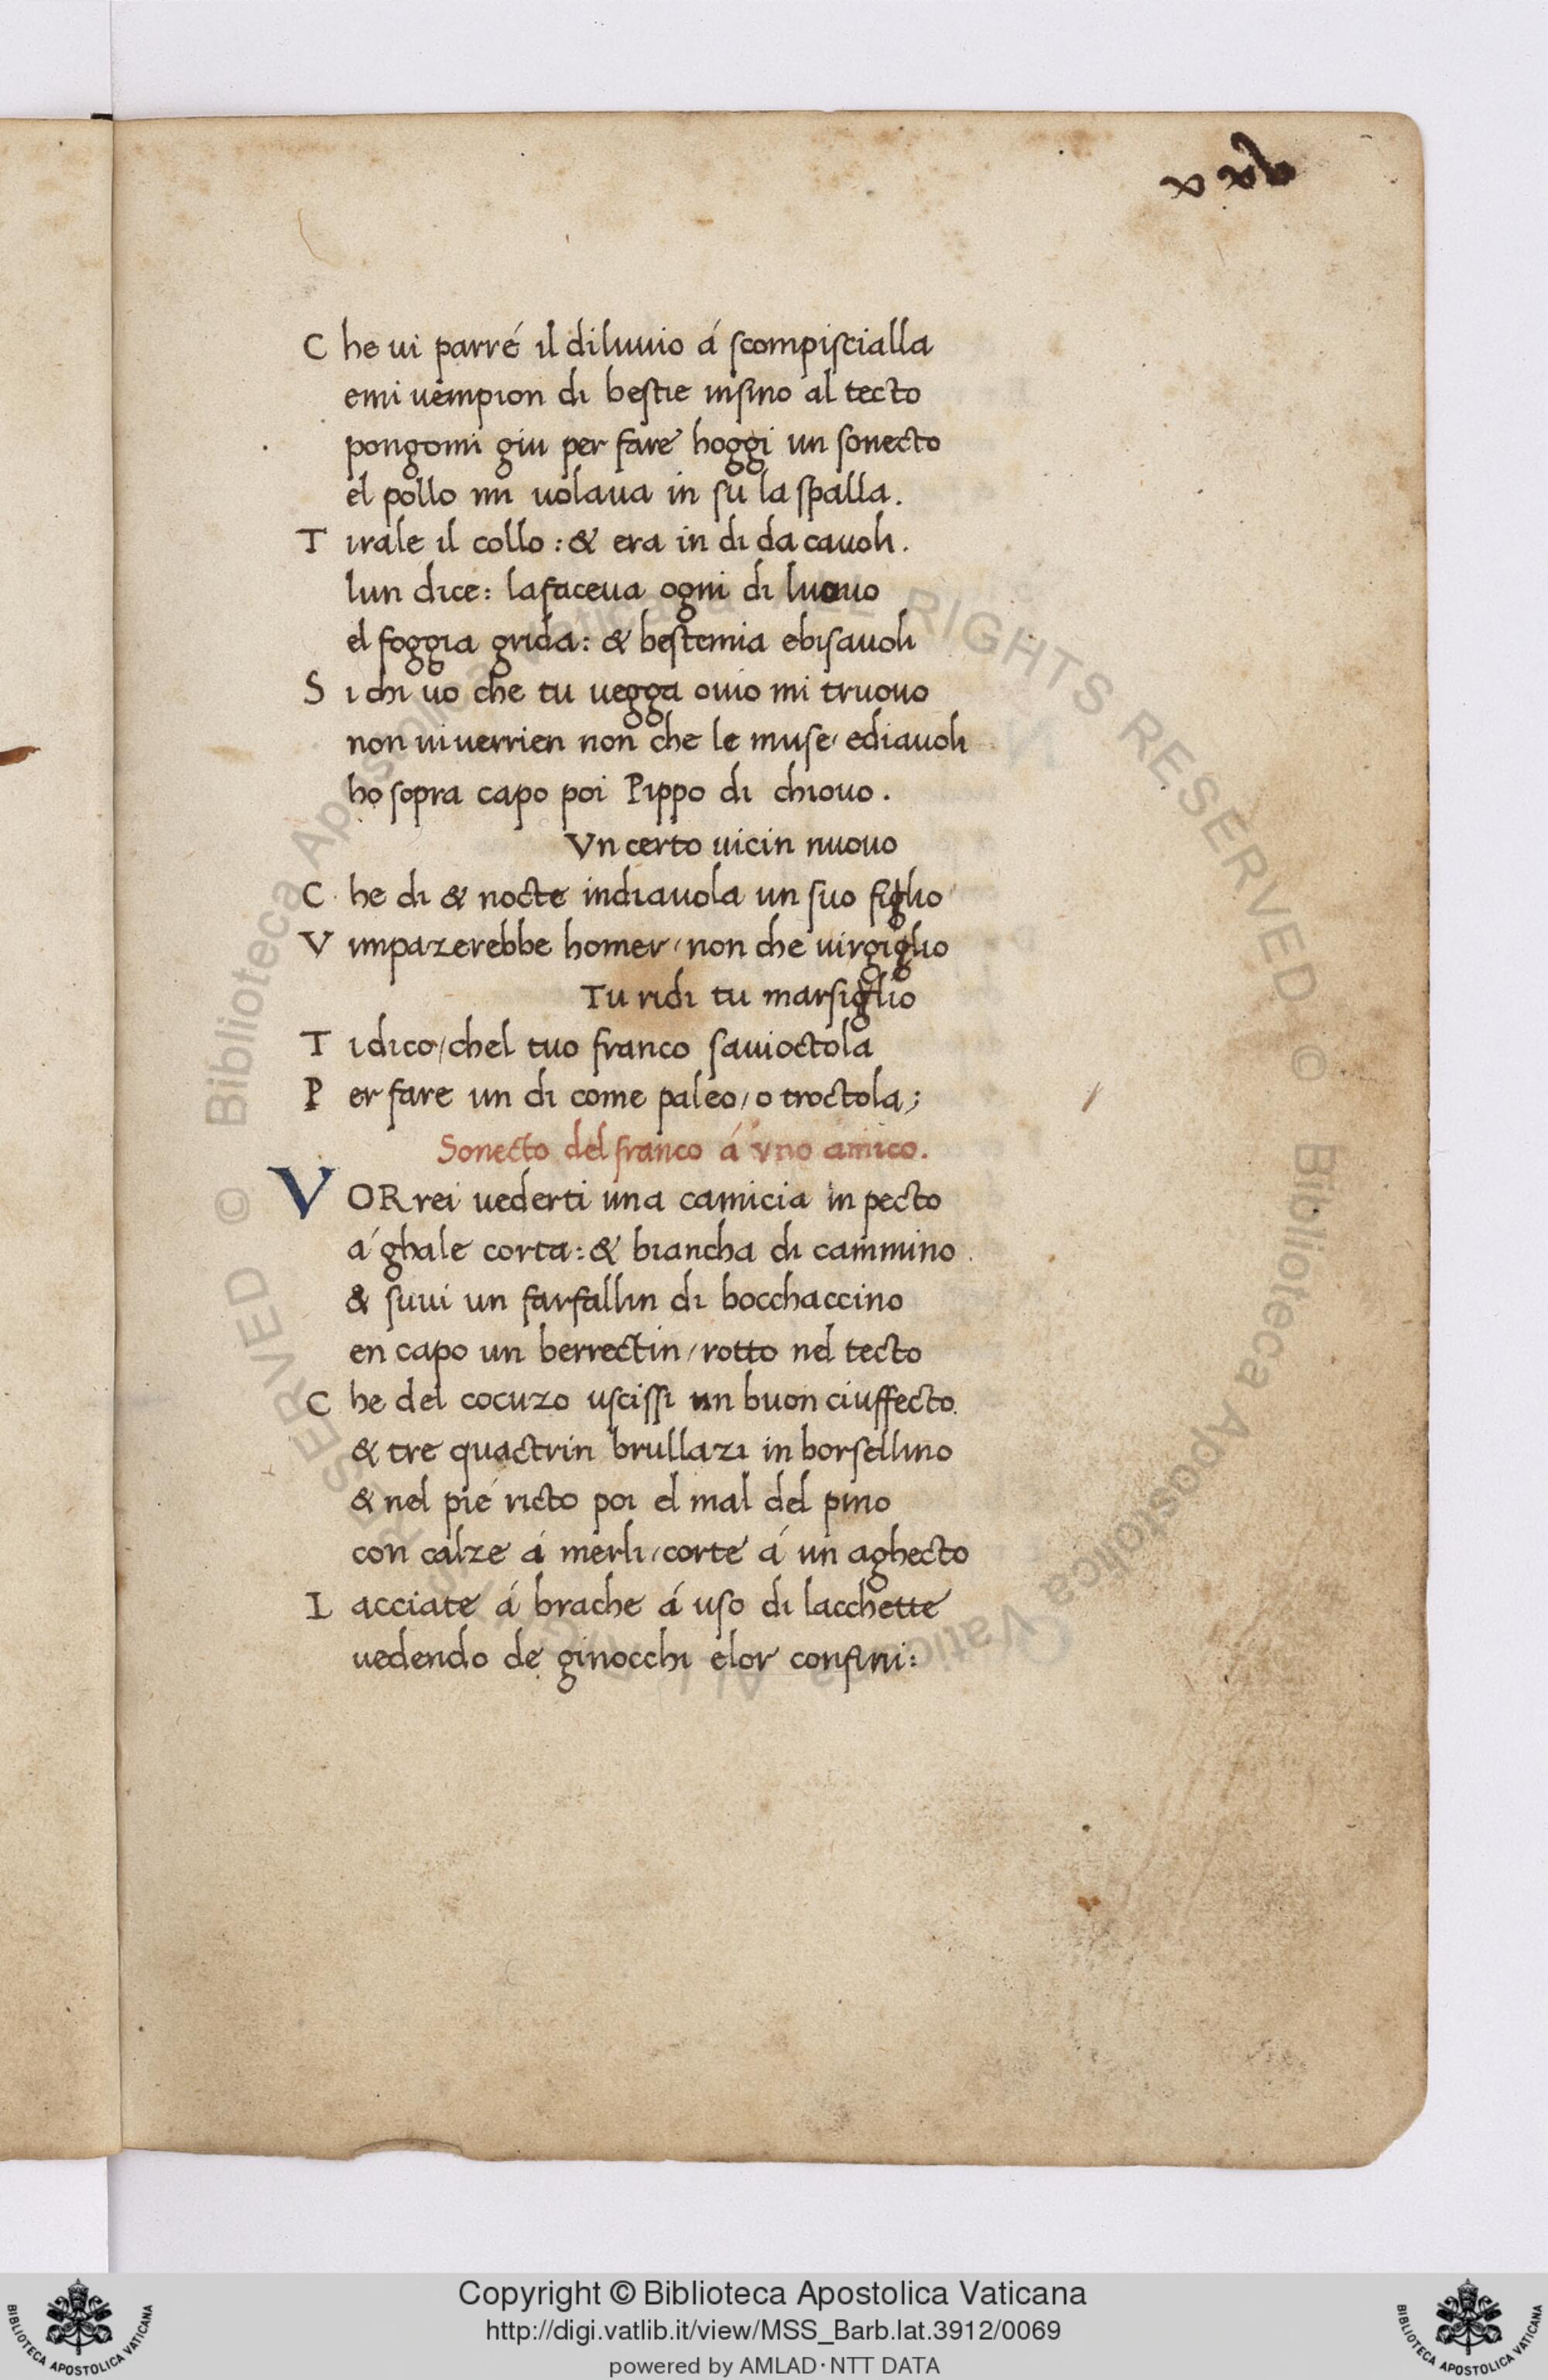 C he ui parré il diluuio á scompiscialla
emi uempion di bestie insino al tecto
pongomi giu per fare hoggi un sonecto
el pollo mi uolaua in su la spalla.
T irale il collo: & era in di da cauoli.
lun dice: lafaceua ogni di luouo
el foggia grida: & bestemia ebisauoli
S i chi uo che tu uegga ouio mi truouo
non ui uerrien non che le muse/ ediauoli
ho sopra capo poi Pippo di chiouo.
Vn certo uicin nuouo
C he di & nocte indiauola un suo figlio
V impazerebbe homer/ non che uirgiglio
Tu ridi tu marsiglio
T idico/ chel tuo franco sauioctola
P er fare un di come paleo/ o troctola;
Sonecto del franco á vno amico.
V ORrei uederti una camicia in pecto
á ghale corta: & biancha di cammino.
& suui un farfallin di bocchaccino
en capo un berrectin/ rotto nel tecto
C he del cocuzo uscissi un buon ciuffecto.
& tre quactrin brullazi in borsellino
& nel pié ricto poi el mal del pino
con calze á merli/ corte á un aghecto
L acciate á brache á uso di lacchette
uedendo de ginocchi elor confini:
© Biblioteca Apostolica Vaticana ALL RIGHTS RESERVED © Biblioteca Apostolica Vaticana ALL RIGHTS RESERVED
Copyright © Biblioteca Apostolica Vaticana
http://digi.vatlib.it/view/MSS_Barb.lat.3912/0069
powered by AMLAD·NTT DATA
BIBLIOTECA APOSTOLICA VATICANA
BIBLIOTECA APOSTOLICA VATICANA